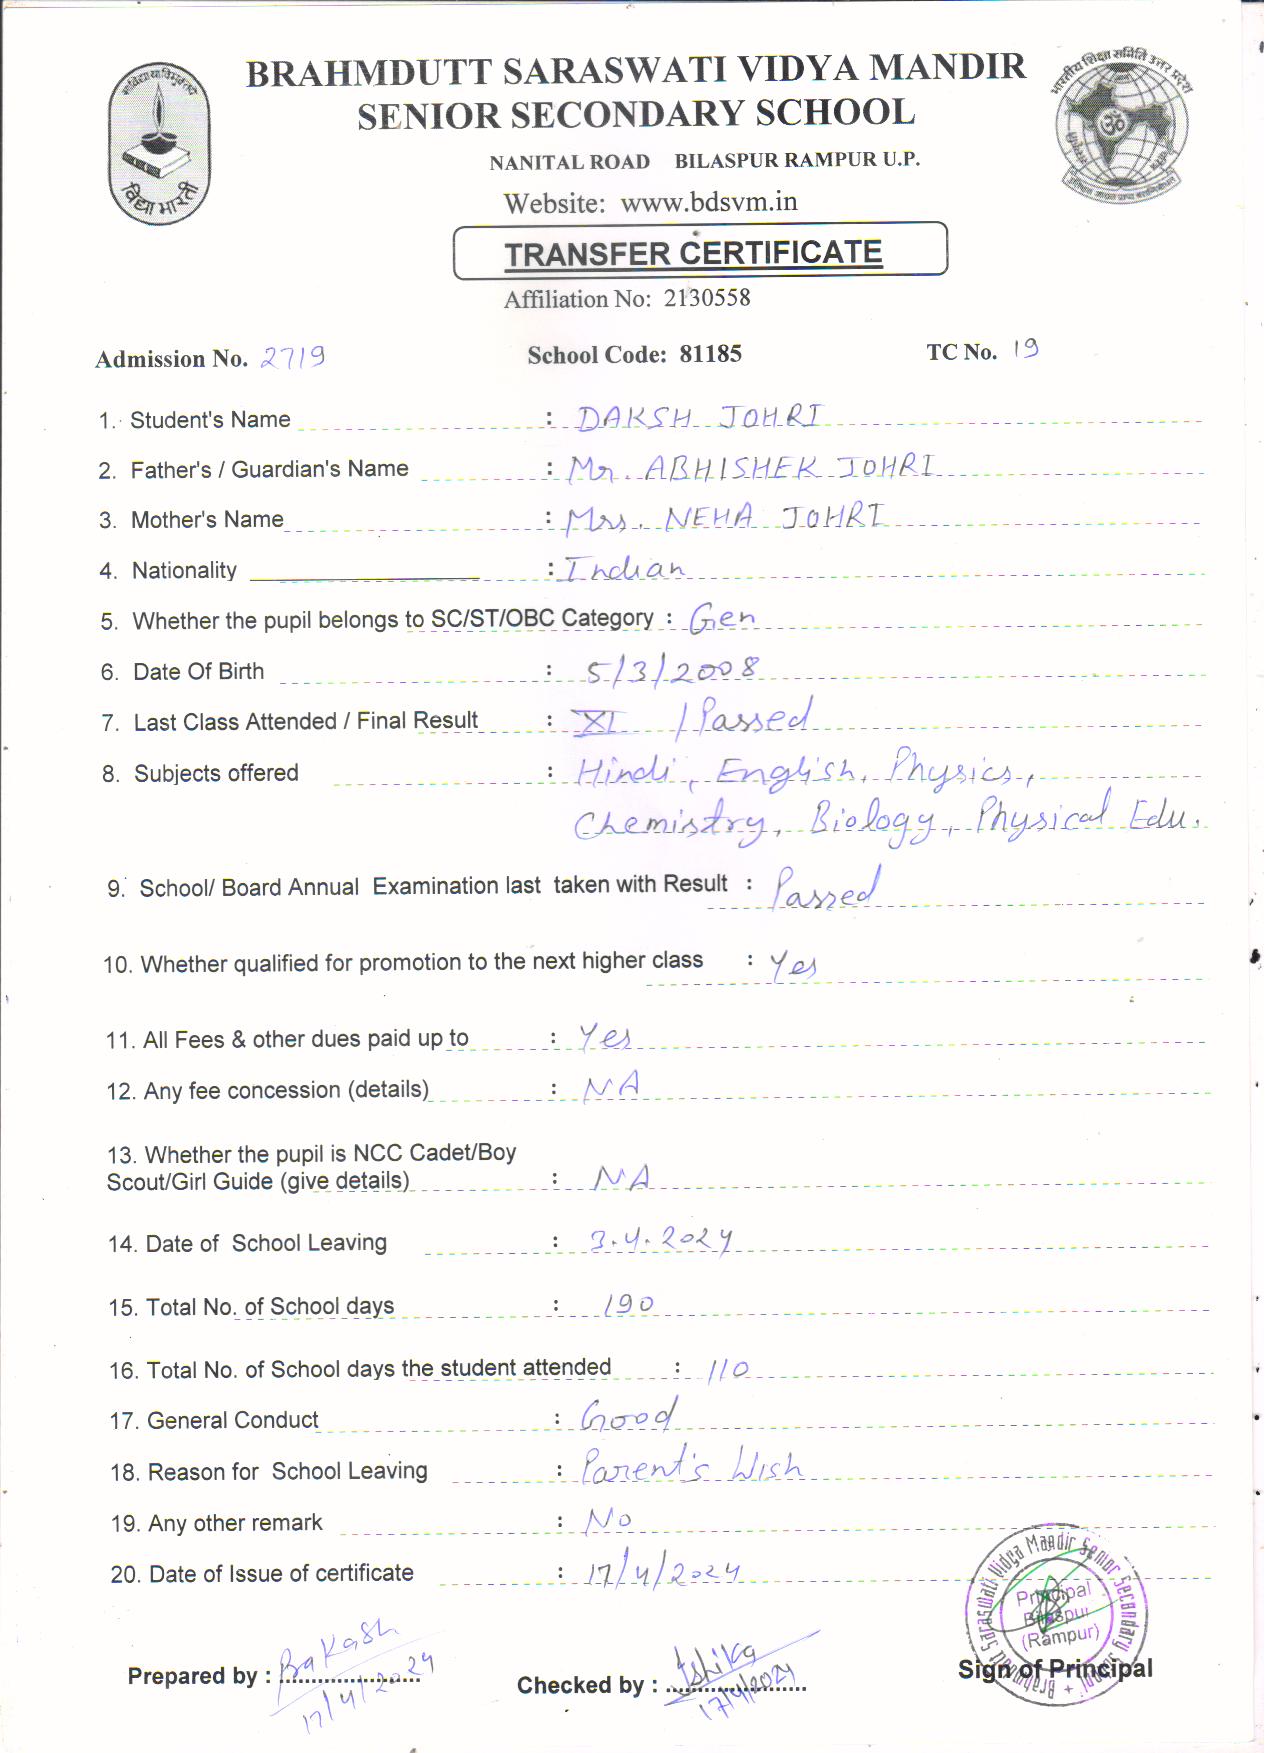 BRAHMDUTT SARASWATI VIDYA MANDIR
SENIOR SECONDARY SCHOOL
NANITAL ROAD BILASPUR RAMPUR U.P.
Website: www.bdsvm.in
विद्या भारती
भारतीय शिक्षा समिति उत्तर प्रदेश
TRANSFER CERTIFICATE
Affiliation No: 2130558
Admission No. 2719 School Code: 81185 TC No. 19
1. Student's Name : DAKSH JOHRI
2. Father's / Guardian's Name : Mr. ABHISHEK JOHRI
3. Mother's Name : Mrs. NEHA JOHRI
4. Nationality : Indian
5. Whether the pupil belongs to SC/ST/OBC Category : Gen
6. Date Of Birth : 5/3/2008
7. Last Class Attended / Final Result : XI / Passed
8. Subjects offered : Hindi, English, Physics,
Chemistry, Biology, Physical Edu.
9. School/ Board Annual Examination last taken with Result : Passed
10. Whether qualified for promotion to the next higher class : Yes
11. All Fees & other dues paid up to : Yes
12. Any fee concession (details) : NA
13. Whether the pupil is NCC Cadet/Boy
Scout/Girl Guide (give details) : NA
14. Date of School Leaving : 3.4.2024
15. Total No. of School days : 190
16. Total No. of School days the student attended : 110
17. General Conduct : Good
18. Reason for School Leaving : Parent's Wish
19. Any other remark : No
20. Date of Issue of certificate : 17/4/2024
Saraswati Vidya Mandir Senior Secondary School
Principal
Bilaspur
(Rampur)
Prepared by : Prakash
17/4/2024
Checked by : Ishika
17/4/2024
Sign of Principal